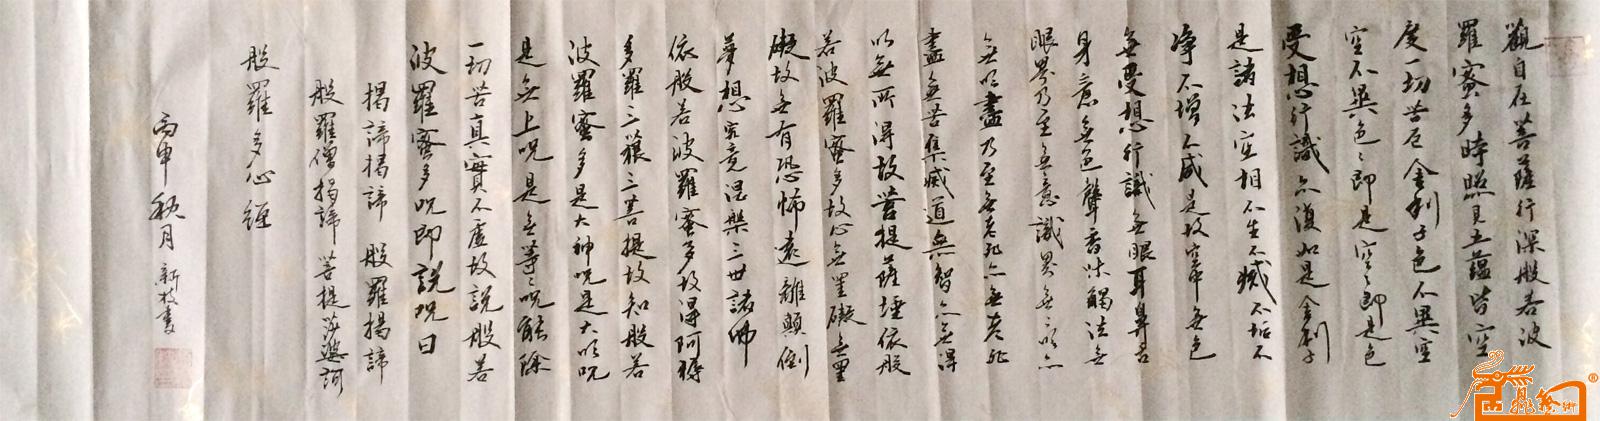 觀自在菩薩行深般若波
羅蜜多時照見五蘊皆空
度一切苦厄舍利子色不異空
空不異色色即是空空即是色
受想行識亦復如是舍利子
是諸法空相不生不滅不垢不
淨不增不減是故空中無色
無受想行識無眼耳鼻舌
身意無色聲香味觸法無
眼界乃至無意識界無無明亦
無無明盡乃至無老死亦無老死
盡無苦集滅道無智亦無得
以無所得故菩提薩埵依般
若波羅蜜多故心無罣礙無罣
礙故無有恐怖遠離顛倒
夢想究竟涅槃三世諸佛
依般若波羅蜜多故得阿耨
多羅三藐三菩提故知般若
波羅蜜多是大神咒是大明咒
是無上咒是無等等咒能除
一切苦真實不虛故說般若
波羅蜜多咒即說咒曰
揭諦揭諦 般羅揭諦
般羅僧揭諦 菩提莎婆訶
般羅多心經
丙申秋月 新書